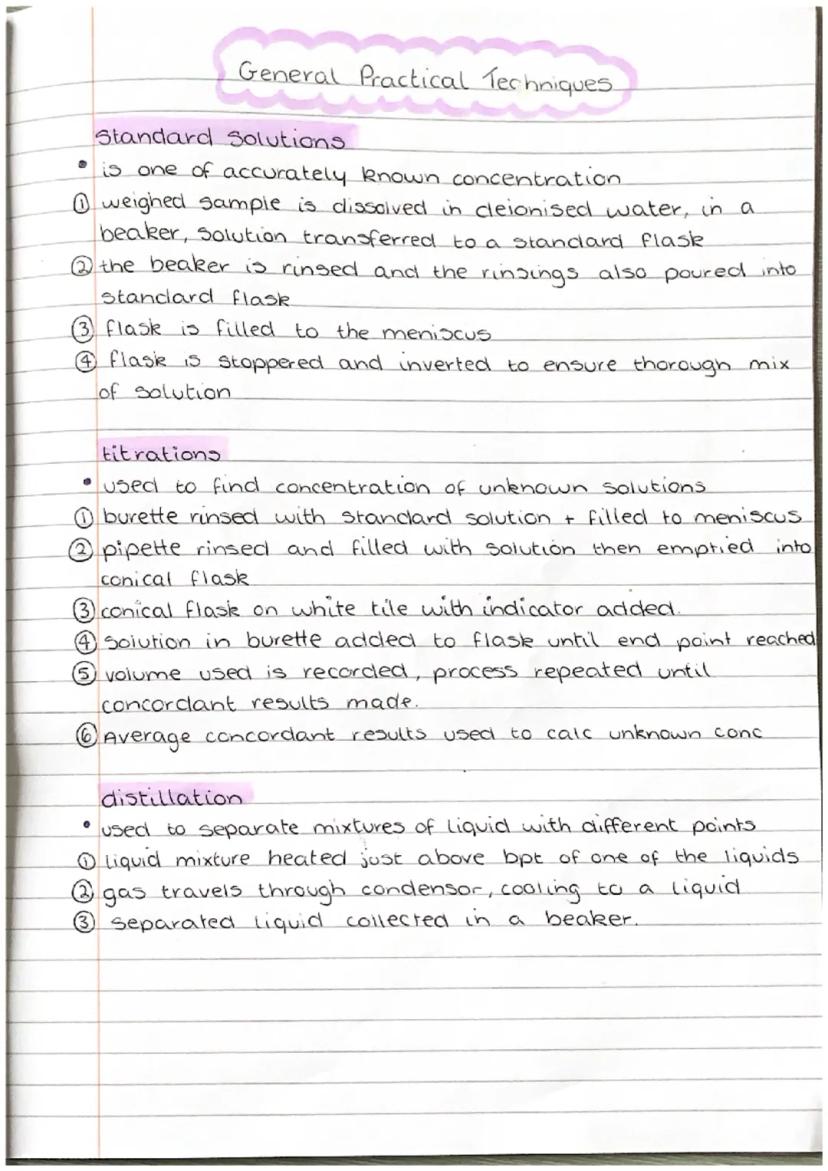 General Practical Techniques
standard solutions
• is one of accurately known concentration
① weighed sample is dissolved in deionised water, in a
beaker, solution transferred to a standard flask
② the beaker is rinsed and the rinsings also poured into
standard flask
③ flask is filled to the meniscus
④ flask is stoppered and inverted to ensure thorough mix
of solution
titrations
• used to find concentration of unknown solutions
① burette rinsed with standard solution + filled to meniscus
② pipette rinsed and filled with solution then emptied into
conical flask
③ conical flask on white tile with indicator added.
④ solution in burette added to flask until end point reached
⑤ volume used is recorded, process repeated until
concordant results made.
⑥ Average concordant results used to calc unknown conc
distillation
• used to separate mixtures of liquid with different points
① liquid mixture heated just above bpt of one of the liquids
② gas travels through condensor, cooling to a liquid
③ separated liquid collected in a beaker.